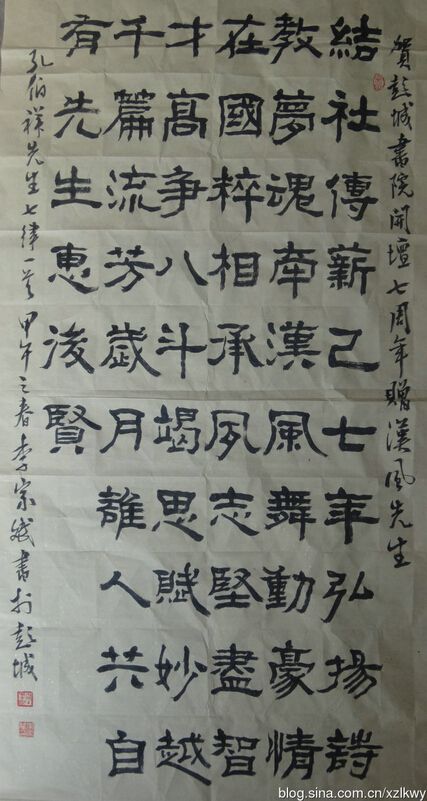 賀彭城書院開壇七周年贈漢風先生
結社傳薪已七年弘揚詩
教夢魂牽漢風舞動豪情
在國粹相承夙志堅盡智
才髙爭八斗竭思賦妙越
千篇流芳歲月誰人共自
有先生惠後賢
孔伯祥先生七律一首 甲午之春李宗書於彭城
blog.sina.com.cn/xzlkwy